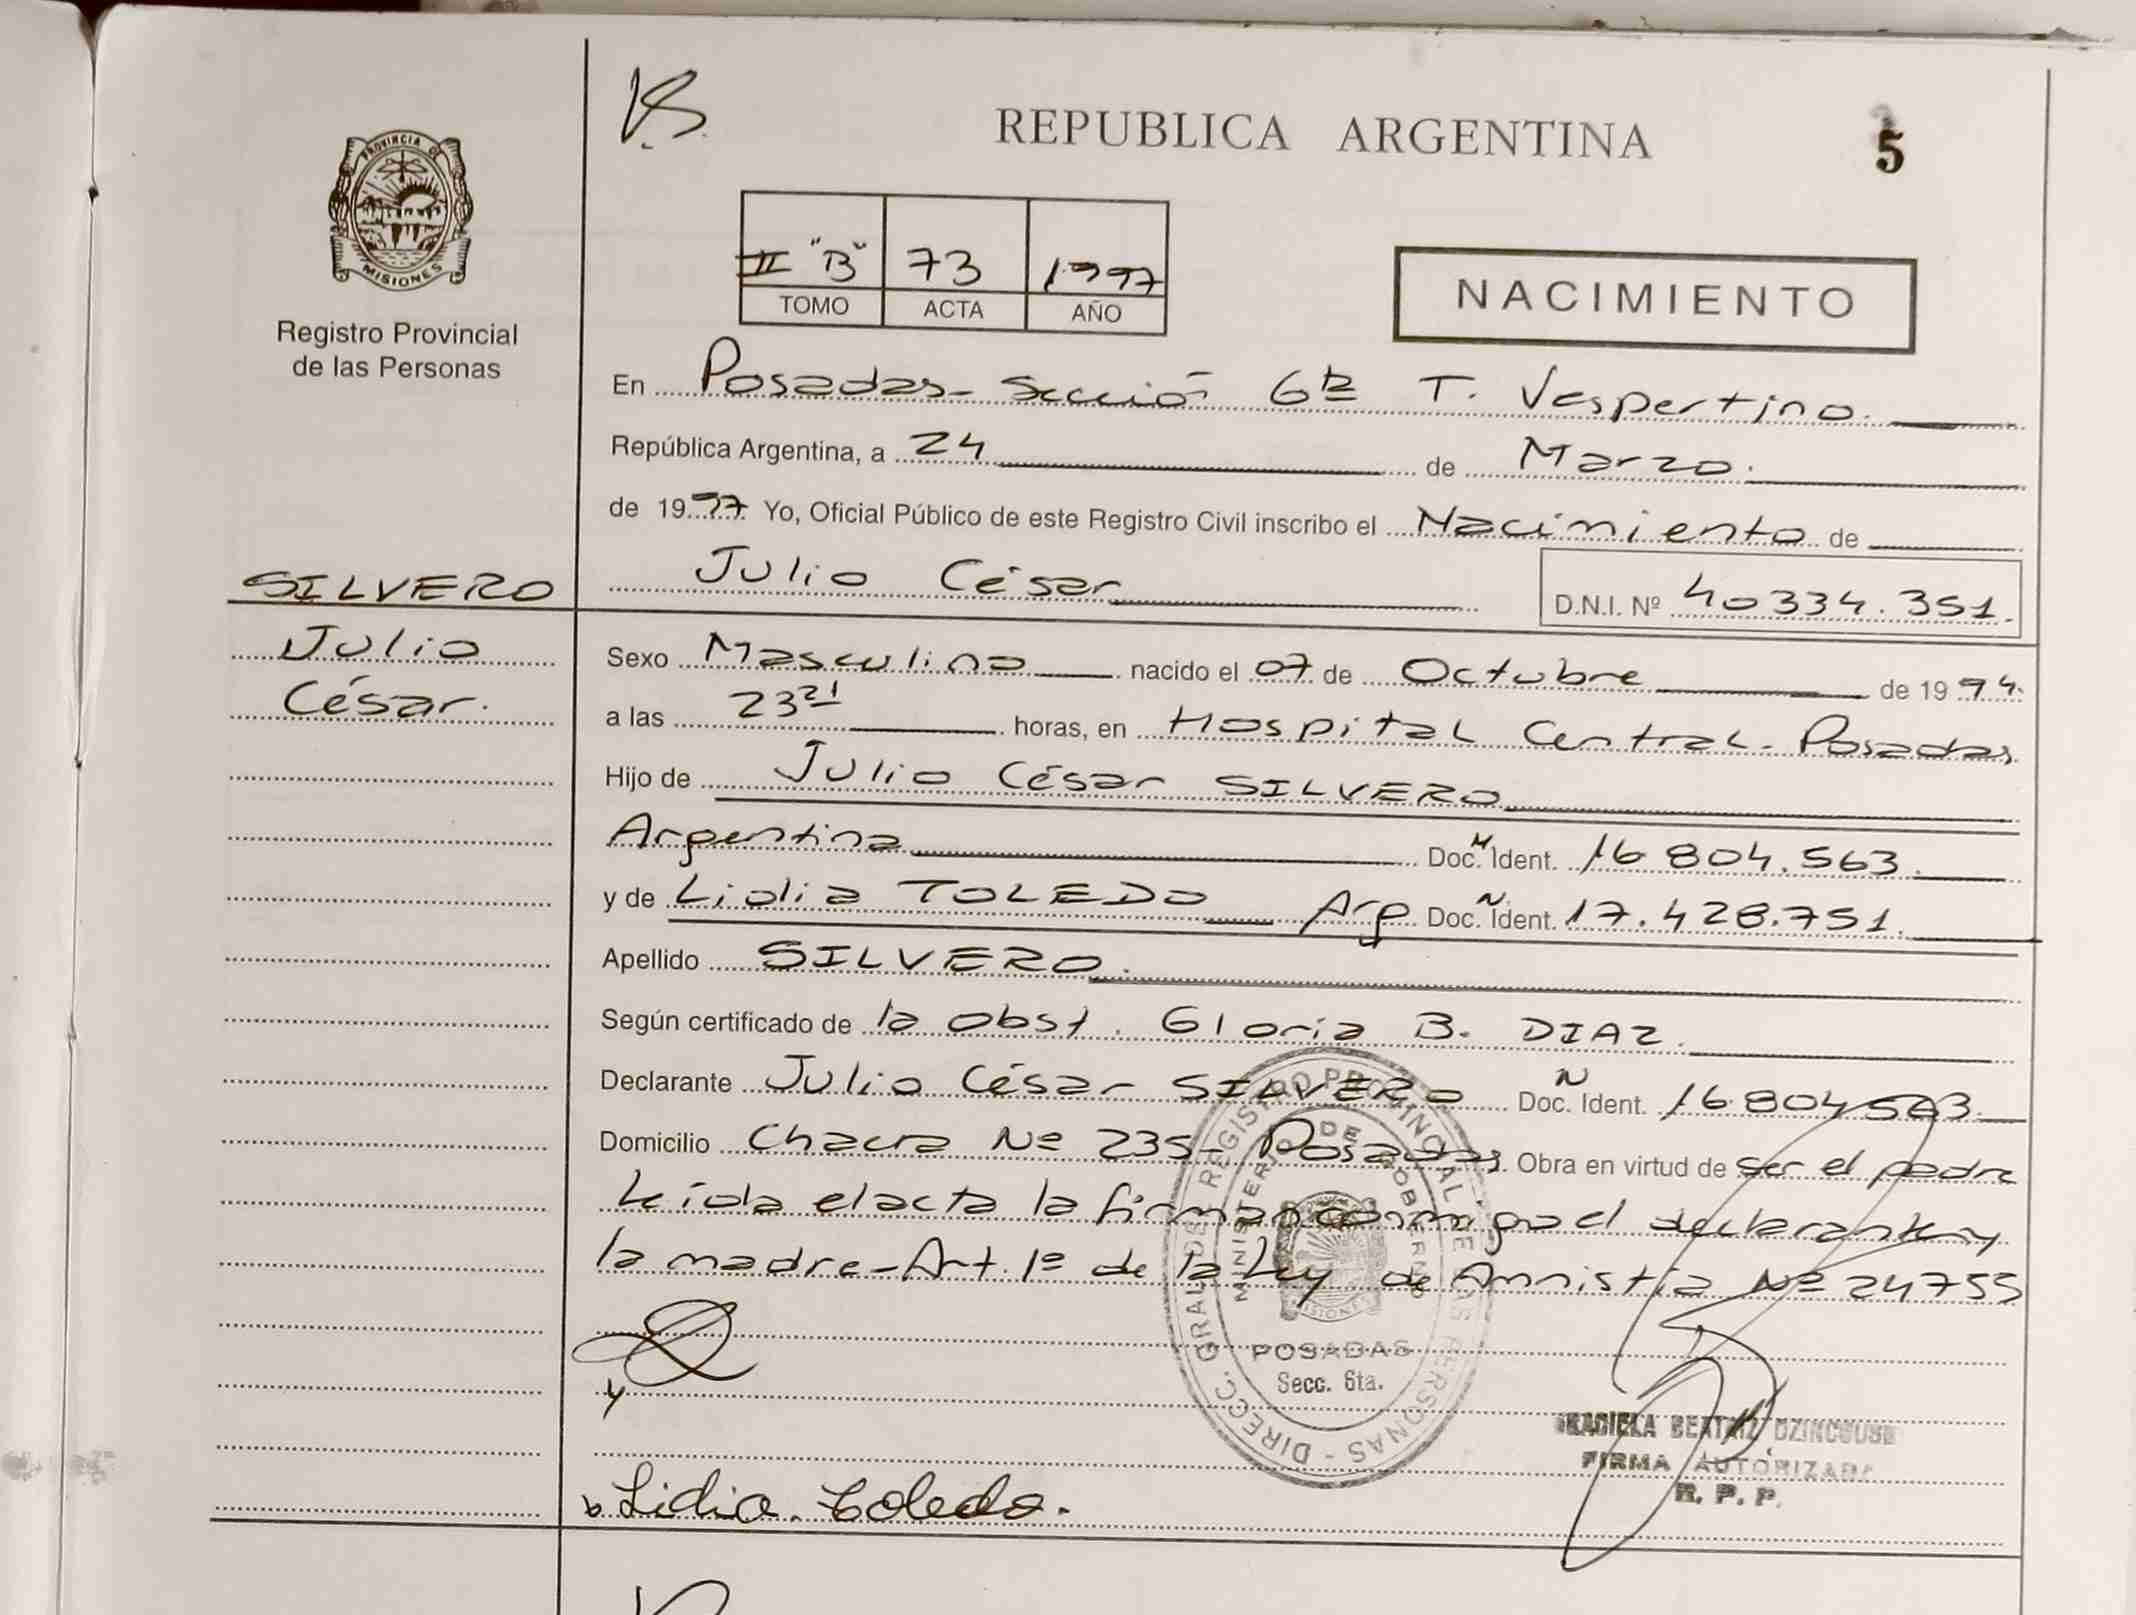 REPUBLICA ARGENTINA
5
PROVINCIA DE
MISIONES
Registro Provincial
de las Personas
II "B" 73 1997
TOMO ACTA AÑO
NACIMIENTO
En Posadas - Sección 6ta T. Vespertino.
República Argentina, a 24 de Marzo.
de 1997 Yo, Oficial Público de este Registro Civil inscribo el Nacimiento de
Julio César D.N.I. Nº 40334.351.
SILVERO
Julio
César.
Sexo Masculino nacido el 07 de Octubre de 1994.
a las 23 21 horas, en Hospital Central - Posadas
Hijo de Julio César SILVERO
Argentina Doc. Ident. 16 804.563.
y de Lidia TOLEDO Arg Doc. Ident. 17.428.751.
Apellido SILVERO.
Según certificado de la obst. Gloria B. DIAZ.
Declarante Julio César SILVERO Doc. Ident. 16 804563.
Domicilio Chacra Nº 235 Posadas. Obra en virtud de ser el padre
Leida el acta la firman conmigo el declarante y
la madre - Art. 1º de la Ley de Amnistia Nº 24755
y
Lidia Toledo.
DIRECC. GRAL. DEL REGISTRO PROVINCIAL DE LAS PERSONAS
MINISTERIO DE GOBIERNO
MISIONES
POSADAS
Secc. 6ta.
GRACIELA BEATRIZ
FIRMA AUTORIZADA
R. P. P.